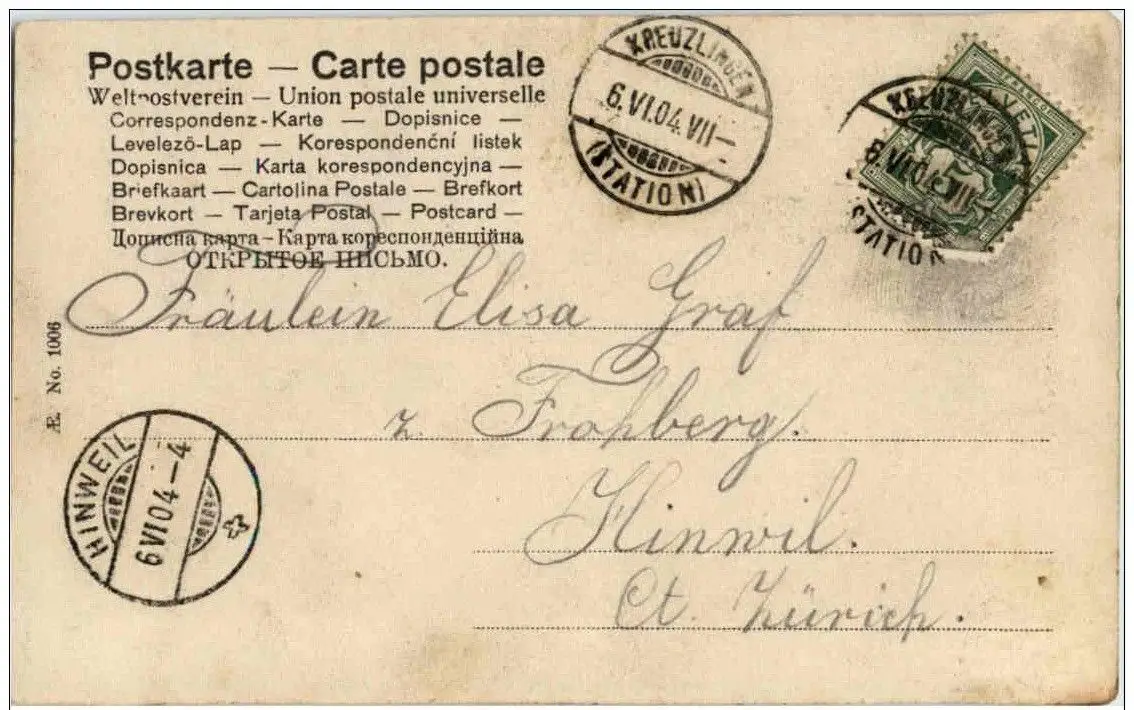 Postkarte — Carte postale
Weltpostverein — Union postale universelle
Correspondenz-Karte — Dopisnice —
Levelező-Lap — Korespondenční listek
Dopisnica — Karta korespondencyjna —
Briefkaart — Cartolina Postale — Brefkort
Brevkort — Tarjeta Postal — Postcard —
Дописна карта — Карта кореспонденційна
ОТКРЫТОЕ ПИСЬМО.
KREUZLINGEN
6.VI.04.VII—
(STATION)
HELVETIA
5
KREUZLINGEN
6.VI.04.VII
STATION
Fräulein Elisa Graf
z. Frohberg.
Hinwil.
Ct. Zürich.
Æ. No. 1006
HINWEIL
6 VI 04 — 4